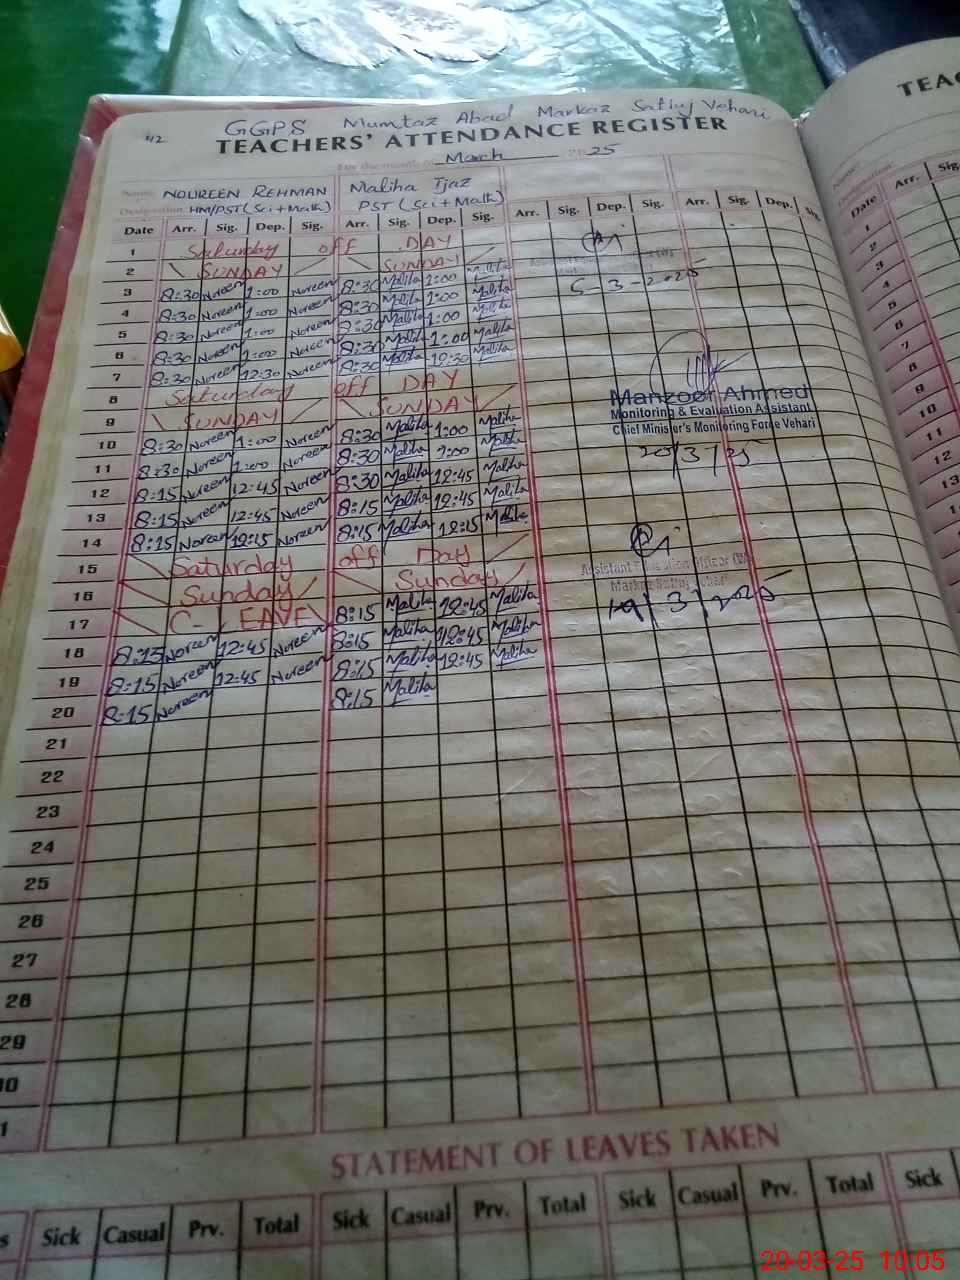 42 GGPS Mumtaz Abad Markaz Satluj Vehari
TEACHERS' ATTENDANCE REGISTER
For the month of March 2025
Name NOUREEN REHMAN Maliha Ijaz
Designation HM/PST (Sci + Math) PST (Sci + Math)
Date Arr. Sig. Dep. Sig. Arr. Sig. Dep. Sig. Arr. Sig. Dep. Sig. Arr. Sig. Dep. Sig.
1 Saturday off DAY
2 SUNDAY SUNDAY
3 8:30 Noreen 1:00 Noreen 8:30 Maliha 1:00 Maliha
4 8:30 Noreen 1:00 Noreen 8:30 Maliha 1:00 Maliha
5 8:30 Noreen 1:00 Noreen 8:30 Maliha 1:00 Maliha
6 8:30 Noreen 1:00 Noreen 8:30 Maliha 1:00 Maliha
7 8:30 Noreen 12:30 Noreen 8:30 Maliha 12:30 Maliha
8 Saturday off DAY
9 SUNDAY SUNDAY
10 8:30 Noreen 1:00 Noreen 8:30 Maliha 1:00 Maliha
11 8:30 Noreen 1:00 Noreen 8:30 Maliha 1:00 Maliha
12 8:15 Noreen 12:45 Noreen 8:30 Maliha 12:45 Maliha
13 8:15 Noreen 12:45 Noreen 8:15 Maliha 12:45 Maliha
14 8:15 Noreen 12:15 Noreen 8:15 Maliha 12:15 Maliha
15 Saturday off Day
16 Sunday Sunday
17 C-LEAVE 8:15 Maliha 12:45 Maliha
18 8:15 Noreen 12:45 Noreen 8:15 Maliha 12:45 Maliha
19 8:15 Noreen 12:45 Noreen 8:15 Maliha 12:45 Maliha
20 8:15 Noreen 8:15 Maliha
21
22
23
24
25
26
27
28
29
-3-2025
Manzoor Ahmed
Monitoring & Evaluation Assistant
Chief Minister's Monitoring Force Vehari
20/3/25
Assistant Education Officer (W)
Markaz Satluj Vehari
19/3/2025
STATEMENT OF LEAVES TAKEN
Sick Casual Prv. Total Sick Casual Prv. Total Sick Casual Prv. Total Sick
TEAC
Name
Designation
Date Arr. Sig.
1
2
3
4
5
6
7
8
9
10
11
12
13
20-03-25 10:05